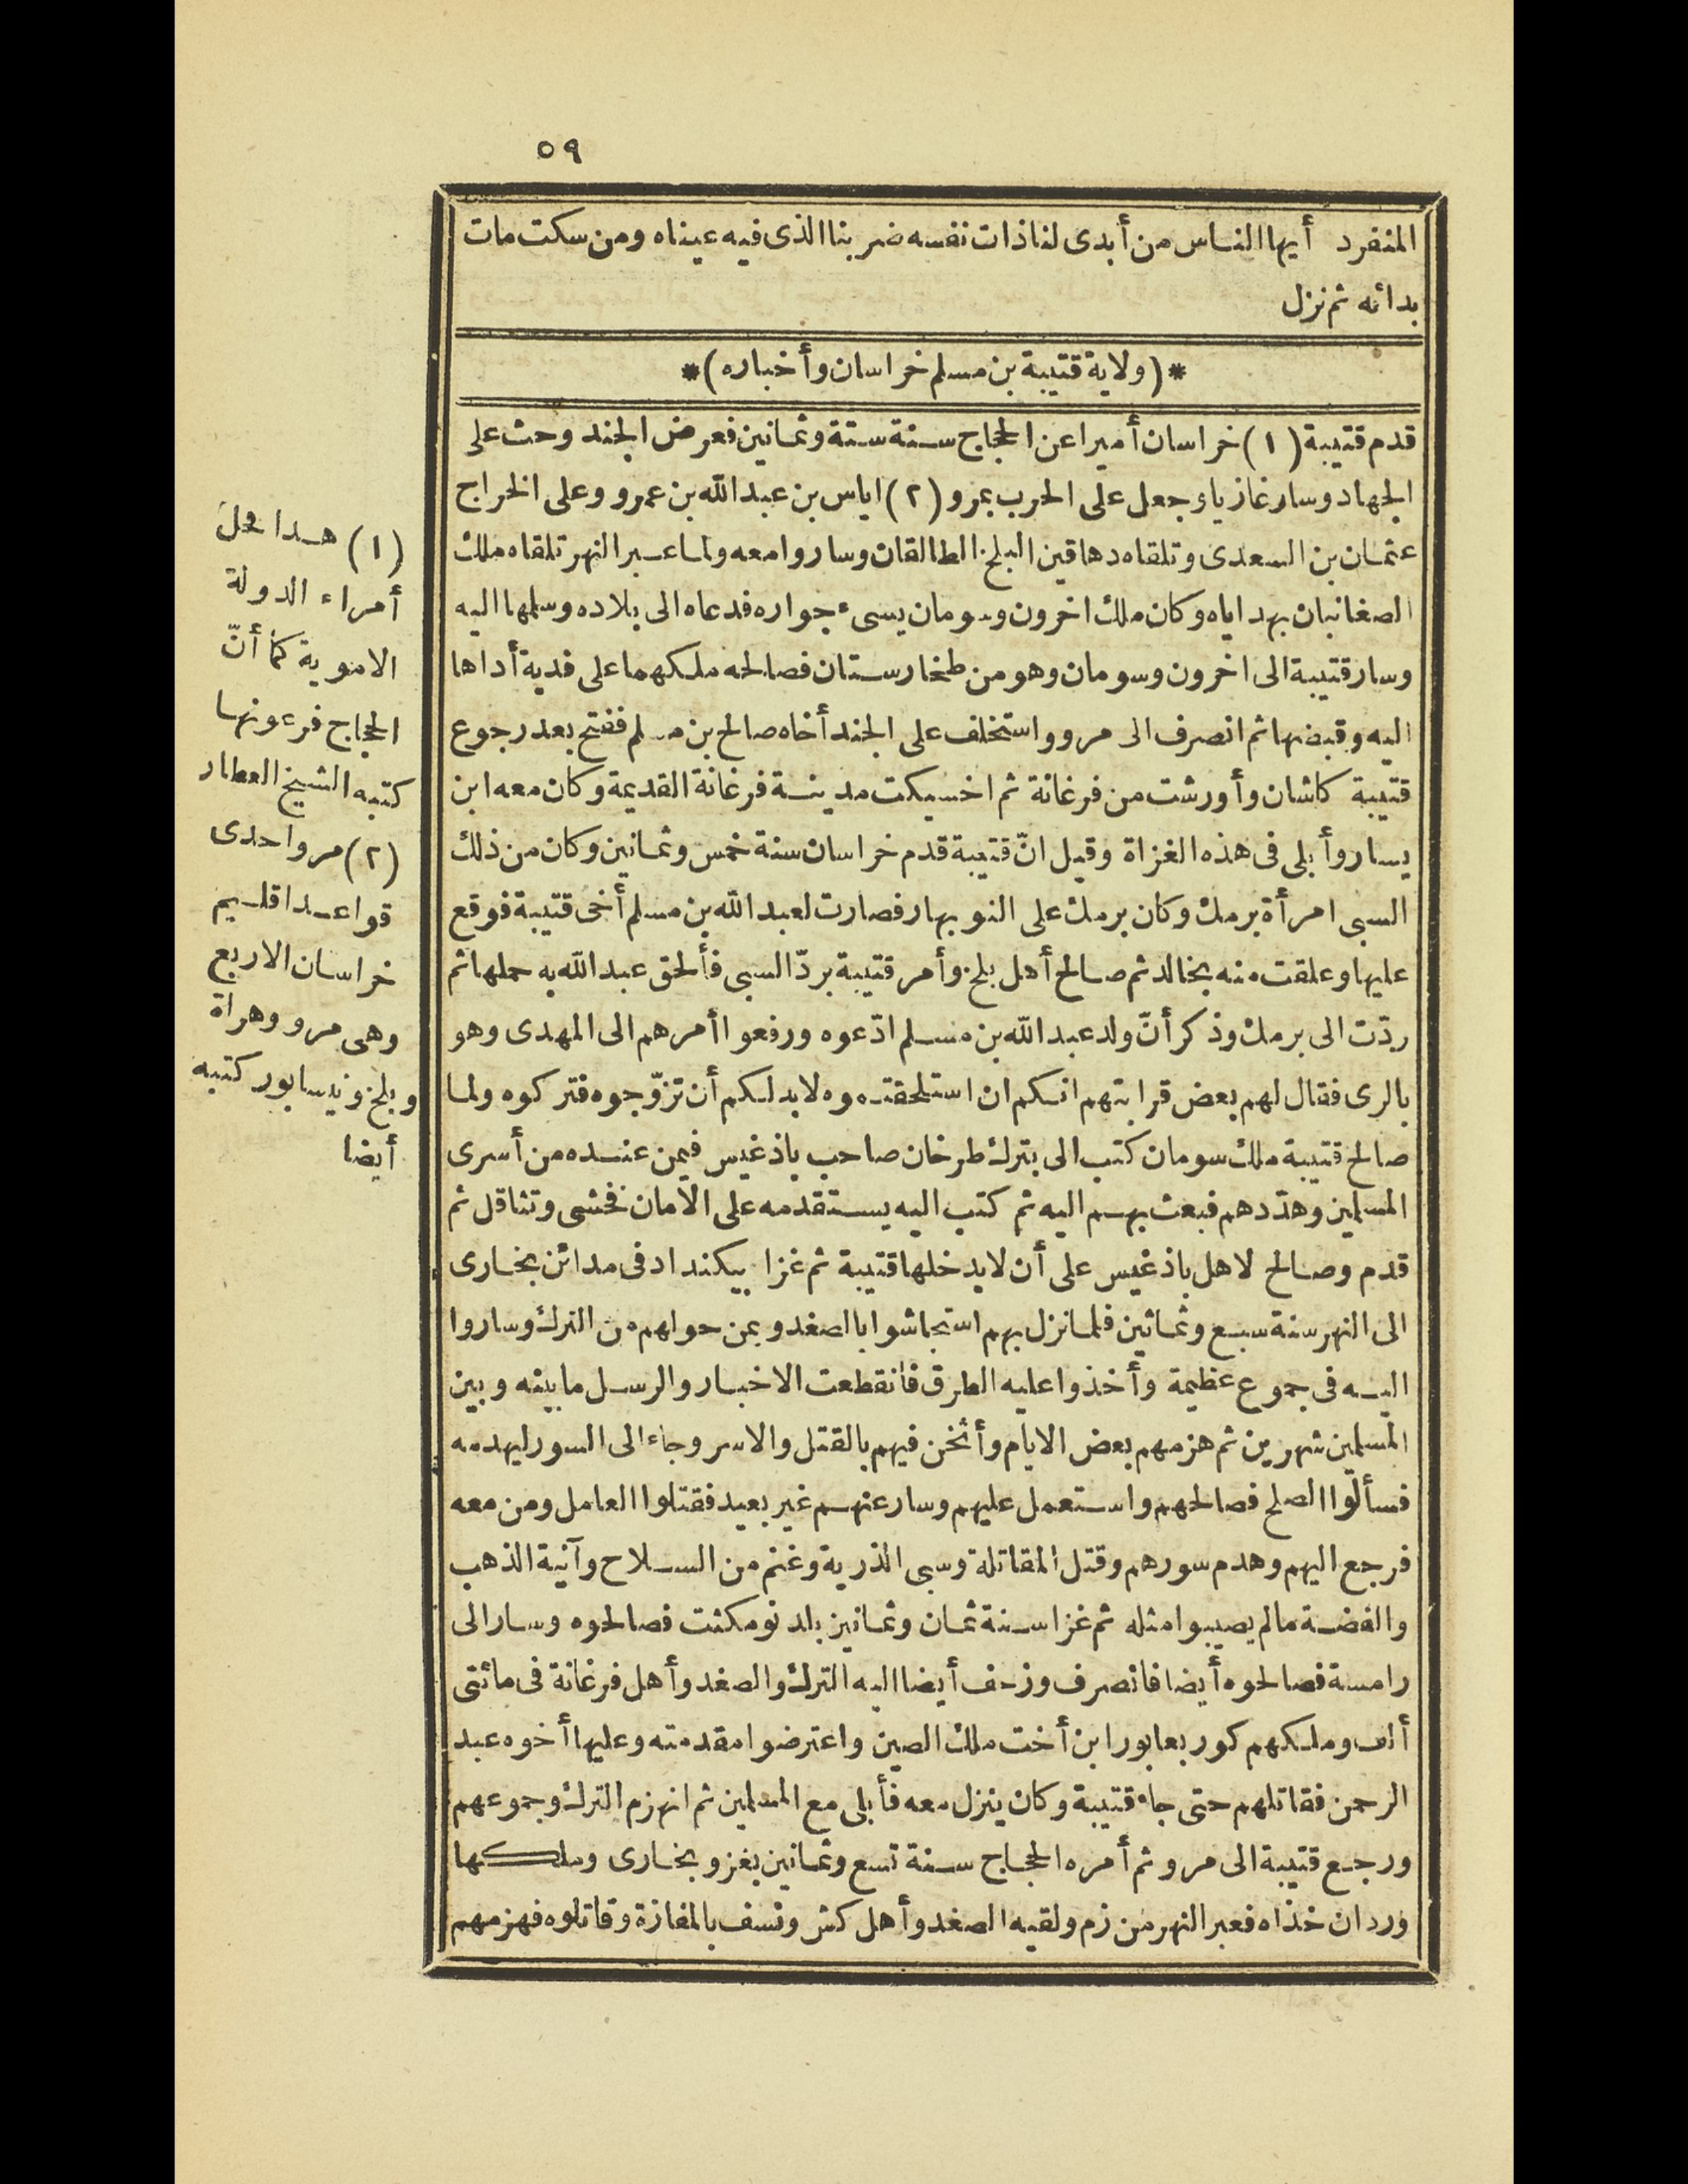 ٥٩
المنفرد أيها الناس من أبدى لنا ذات نفسه ضربنا الذى فيه عيناه ومن سكت مات
بدائه ثم نزل
*(ولاية قتيبة بن مسلم خراسان وأخباره)*
قدم قتيبة (١) خراسان أميرا عن الحجاج سنة ستة وثمانين فعرض الجند وحث على
الجهاد وسار غازيا وجعل على الحرب بمرو (٢) اياس بن عبد الله بن عمرو وعلى الخراج
عثمان بن السعدى وتلقاه دهاقين البلخ الطالقان وساروا معه ولما عبر النهر تلقاه ملك
الصغانيان بهداياه وكان ملك اخرون وسومان يسىء جواره فدعاه الى بلاده وسلمها اليه
وسار قتيبة الى اخرون وسومان وهو من طخارستان فصالحه ملكهما على فدية أداها
اليه وقبضها ثم انصرف الى مرو واستخلف على الجند أخاه صالح بن مسلم ففتح بعد رجوع
قتيبة كاشان وأورشت من فرغانة ثم اخسيكت مدينة فرغانة القديمة وكان معه ابن
يسار وأبلى فى هذه الغزاة وقيل انّ قتيبة قدم خراسان سنة خمس وثمانين وكان من ذلك
السبى امرأة برمك وكان برمك على النوبهار فصارت لعبد الله بن مسلم أخى قتيبة فوقع
عليها وعلقت منه بخالد ثم صالح أهل بلخ وأمر قتيبة بردّ السبى فألحق عبد الله به حملها ثم
ردّت الى برمك وذكر أنّ ولد عبد الله بن مسلم ادّعوه ورفعوا أمرهم الى المهدى وهو
بالرى فقال لهم بعض قرابتهم انكم ان استلحقتموه لابد لكم أن تزوّجوه فتركوه ولما
صالح قتيبة ملك سومان كتب الى بترك طرخان صاحب باذغيس فيمن عنده من أسرى
المسلمين وهدّدهم فبعث بهم اليه ثم كتب اليه يستقدمه على الأمان فخشى وتثاقل ثم
قدم وصالح لاهل باذغيس على أن لا يدخلها قتيبة ثم غزا بيكند ادفى مدائن بخارى
الى النهر سنة سبع وثمانين فلما نزل بهم استجاشوا بالصغد وبمن حولهم من الترك وساروا
اليه فى جموع عظيمة وأخذوا عليه الطرق فانقطعت الاخبار والرسل ما بينه وبين
المسلمين شهرين ثم هزمهم بعض الايام وأثخن فيهم بالقتل والاسر وجاء الى السور ليهدمه
فسألوا الصلح فصالحهم واستعمل عليهم وسار عنهم غير بعيد فقتلوا العامل ومن معه
فرجع اليهم وهدم سورهم وقتل المقاتلة وسبى الذرية وغنم من السلاح وآنية الذهب
والفضة مالم يصيبوا مثله ثم غزا سنة ثمان وثمانين بلد نومكثت فصالحوه وسار الى
رامسة فصالحوه أيضا فانصرف وزحف أيضا اليه الترك والصغد وأهل فرغانة فى مائتى
ألف وملكهم كوربعابور ابن أخت ملك الصين واعترضوا مقدمته وعليها أخوه عبد
الرحمن فقاتلهم حتى جاء قتيبة وكان ينزل معه فأبلى مع المسلمين ثم انهزم الترك وجموعهم
ورجع قتيبة الى مرو ثم أمره الحجاج سنة تسع وثمانين بغزو بخارى وملكها
وردان خذاه فعبر النهر من زم ولقيه الصغد وأهل كش ونسف بالمفازة وقاتلوه فهزمهم
(١) هـذا محل
أمراء الدولة
الاموية كما أنّ
الحجاج فرعونها
كتبه الشيخ العطار
(٢) مرو احدى
قواعد اقليم
خراسان الاربع
وهى مرو وهراة
وبلخ ونيسابور كتبه
أيضا